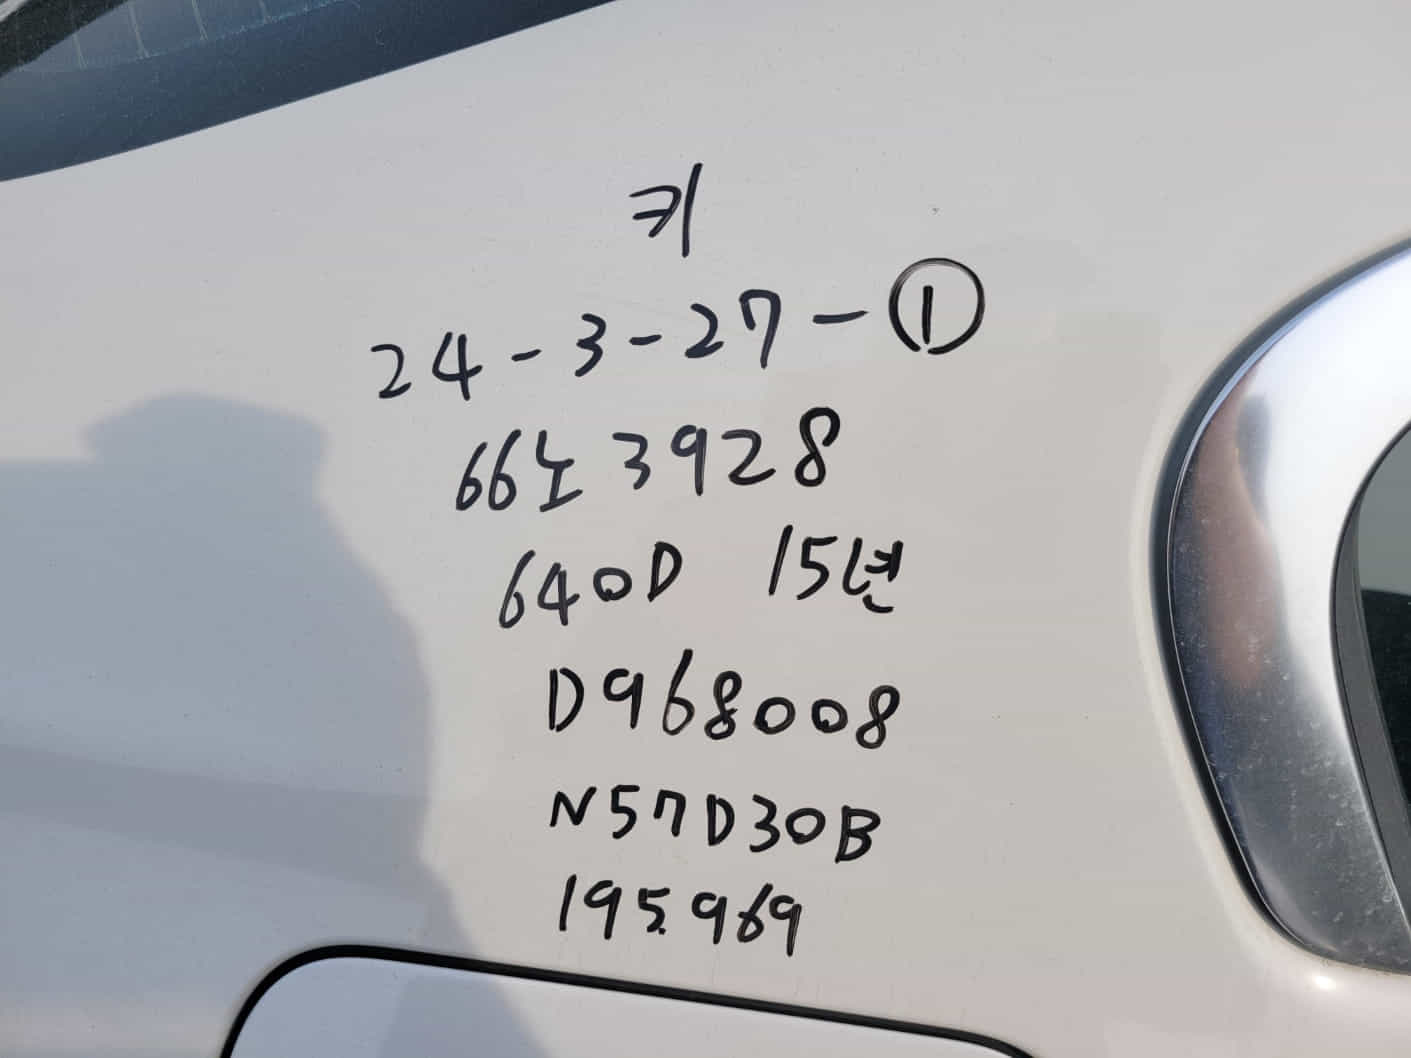 키
24-3-27-①
66노3928
640D 15년
D968008
N57D30B
195.969